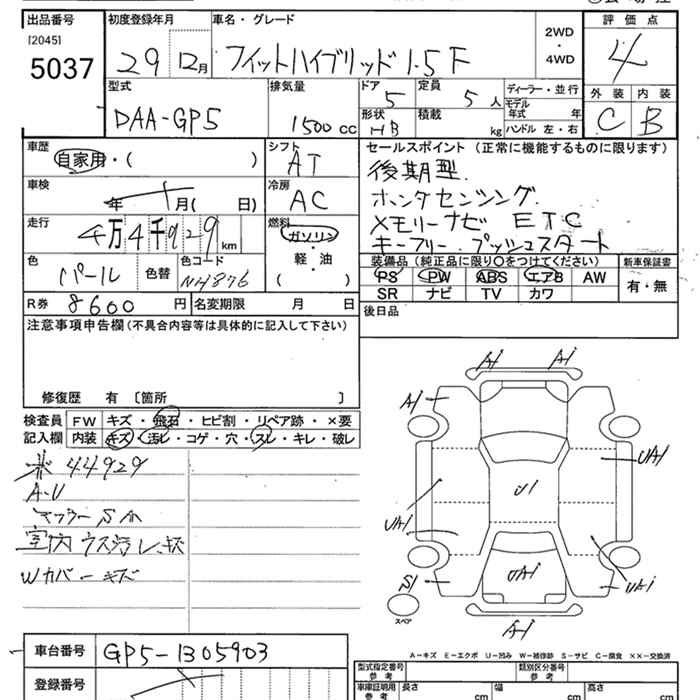 出品番号 初度登録年月 車名・グレード 評価点
[2045]
5037 29 12月 フィットハイブリッド 1.5F 2WD・4WD 4
型式 排気量 ドア 定員 ディーラー・並行 外装 内装
DAA-GP5 1500cc 5 5人 モデル年式 年 C B
形状 積載 ハンドル 左・右
HB kg
車歴 シフト セールスポイント (正常に機能するものに限ります)
自家用・( ) AT 後期型
車検 冷房 ホンダセンシング
年 月( 日) AC メモリーナビ ETC
走行 燃料 キーフリー プッシュスタート
4万4千929km ガソリン・軽・油 ( )
装備品(純正品に限り○をつけてください) 新車保証書
色 色替 色コード PS PW ABS エアB AW 有・無
パール NH876 SR ナビ TV カワ
R券 8600円 名変期限 月 日 後日品
注意事項申告欄(不具合内容等は具体的に記入して下さい)
修復歴 有 〔箇所 〕
検査員 FW キズ・飛石・ヒビ割・リペア跡・×要
記入欄 内装 キズ・汚レ・コゲ・穴・スレ・キレ・破レ
44929
A-U
マフラーSm
室内 ウス汚レ・キズ
Wカバーキズ
A1 A1
A1
UA1
U1
UA1
UA1
UA1
S1
スペア
A1
A-キズ E-エクボ U-凹み W-補修跡 S-サビ C-腐食 ××-交換済
車台番号 GP5-1305903
登録番号
型式指定番号 参考 類別区分番号 参考
車庫証明用 参考 長さ cm 幅 cm 高さ cm